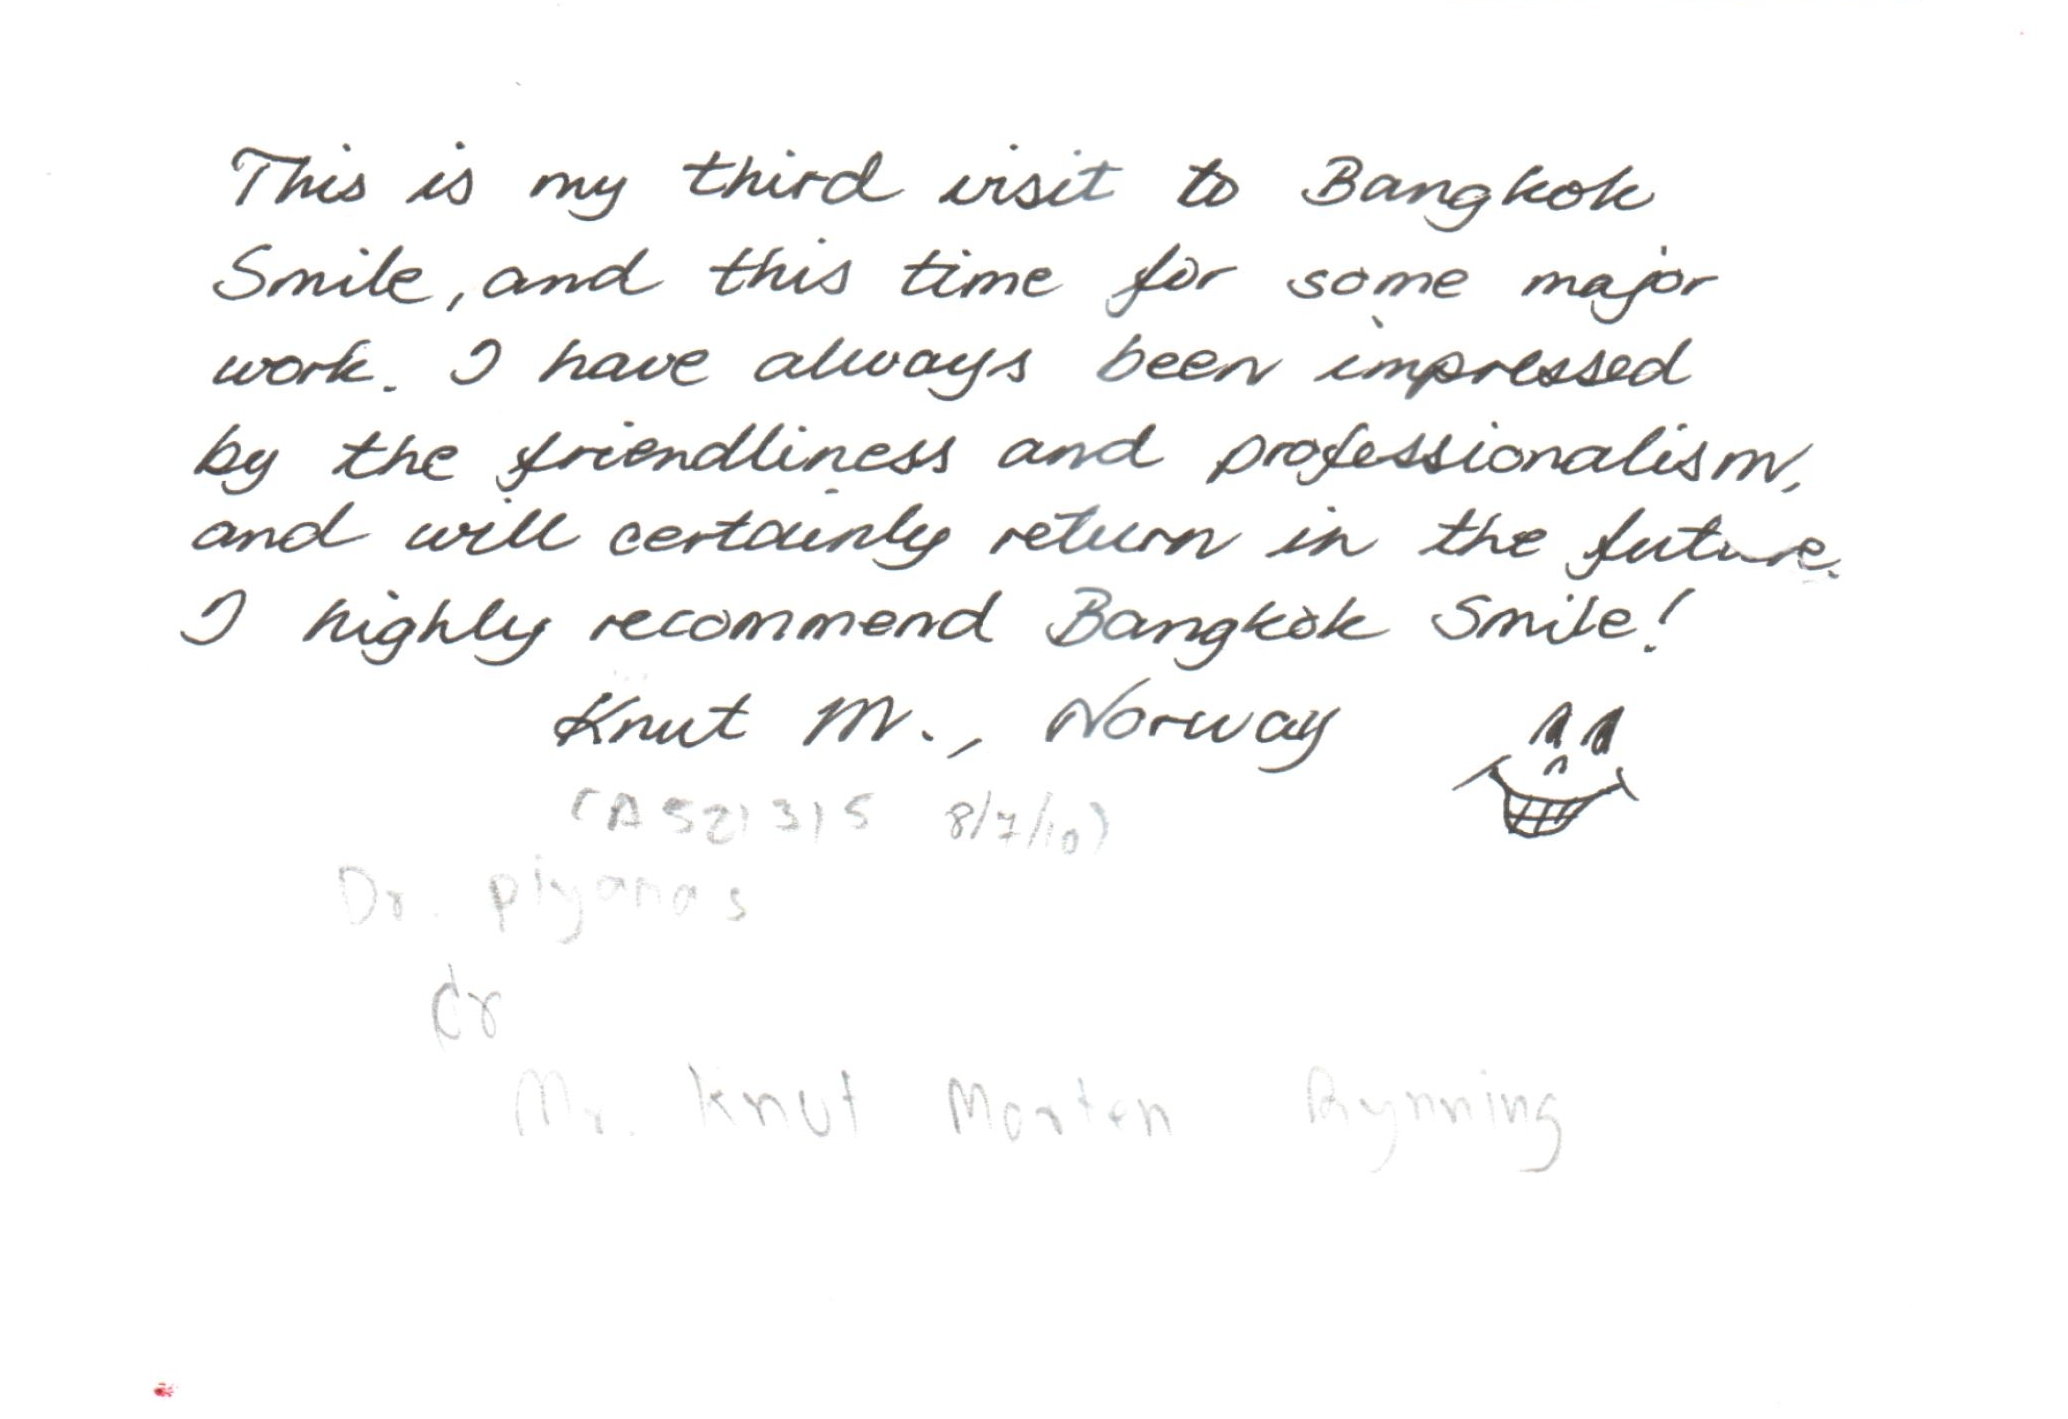 This is my third visit to Bangkok
Smile, and this time for some major
work. I have always been impressed
by the friendliness and professionalism,
and will certainly return in the future.
I highly recommend Bangkok Smile!
Knut M., Norway
(A521315 8/7/10)
Dr. Piyanas
dr
Mr. Knut Morten Rynning